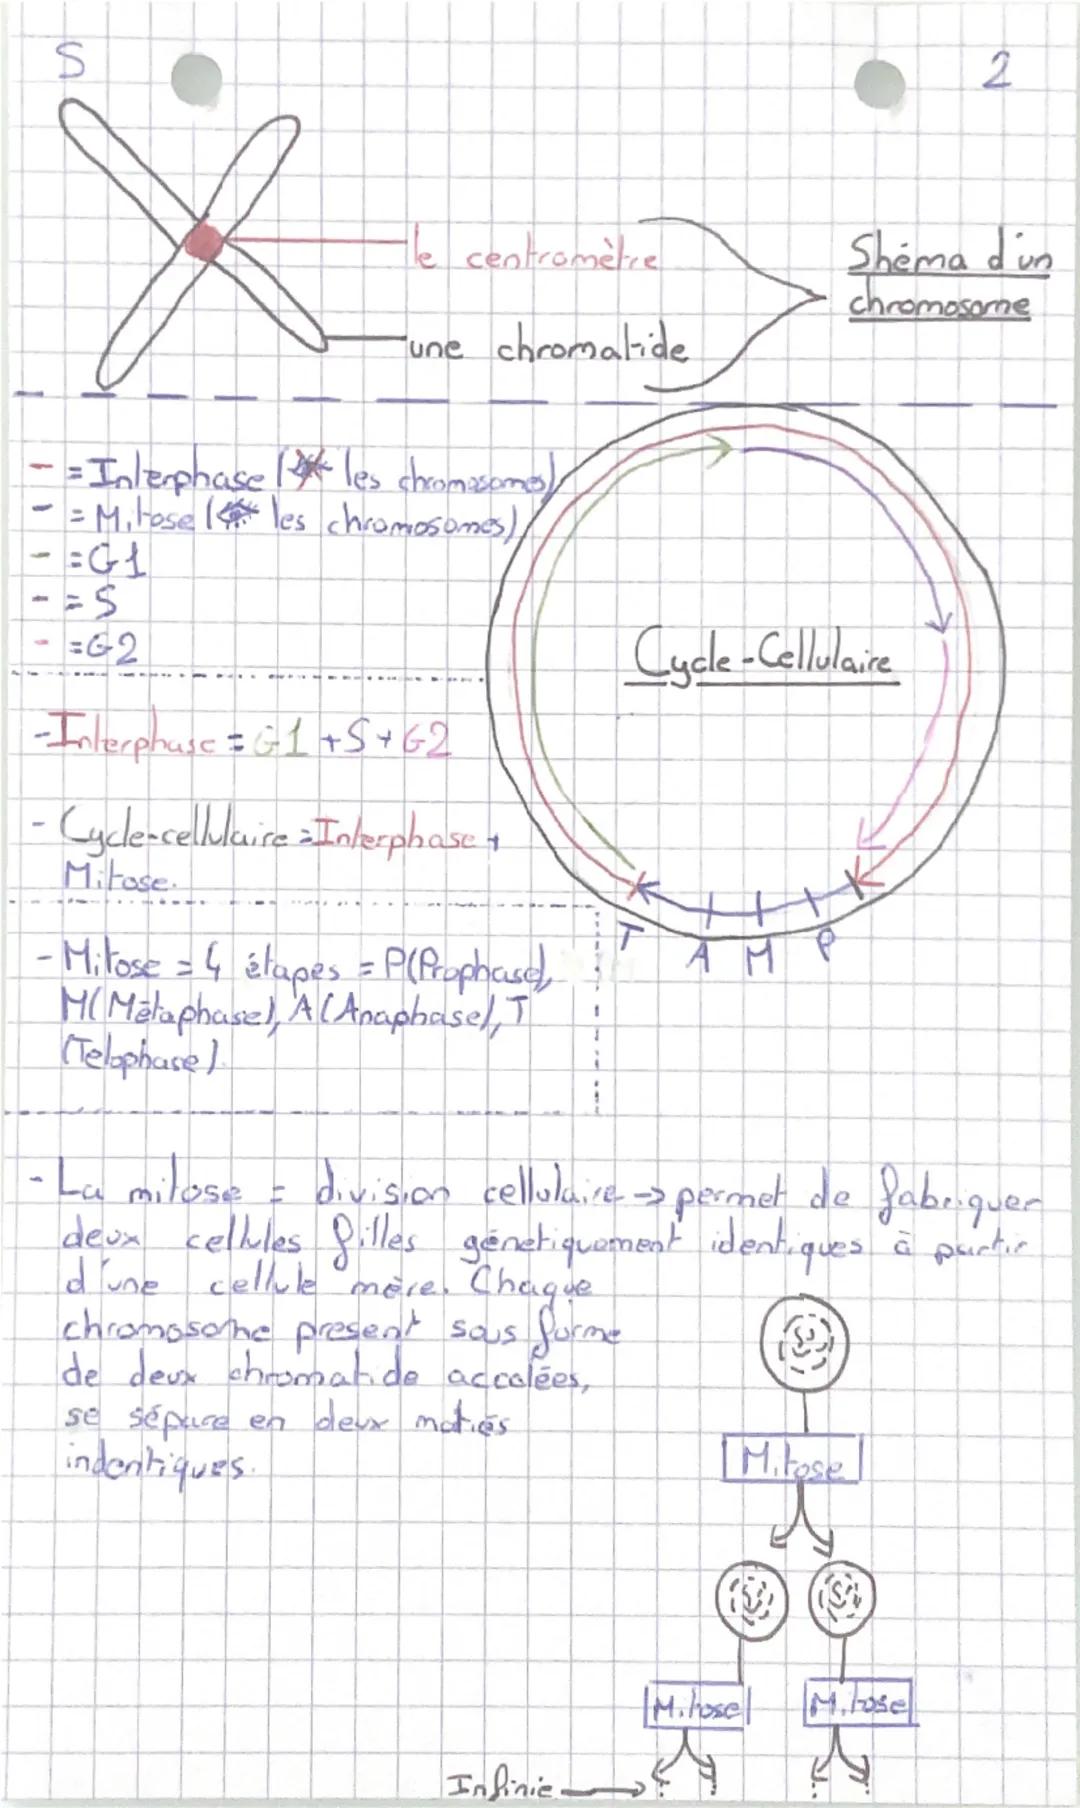 S
2
le centromètre
une chromatide
Shéma d'un
chromosome
- = Interphase ( les chromosomes)
- = Mitose ( les chromosomes)
- = G1
- = S
- = G2
Cycle-Cellulaire
- Interphase = G1 + S + G2
- Cycle-cellulaire = Interphase +
Mitose.
T A M P
- Mitose = 4 étapes = P(Prophase),
M(Métaphase), A(Anaphase), T
(Telophase).
- La mitose = division cellulaire → permet de fabriquer
deux cellules filles génetiquement identiques à partir
d'une cellule mère. Chaque
chromosome present sous forme
de deux chromatide accolées,
se sépare en deux motiés
indentiques.
Mitose
Mitose
Mitose
Infinie →